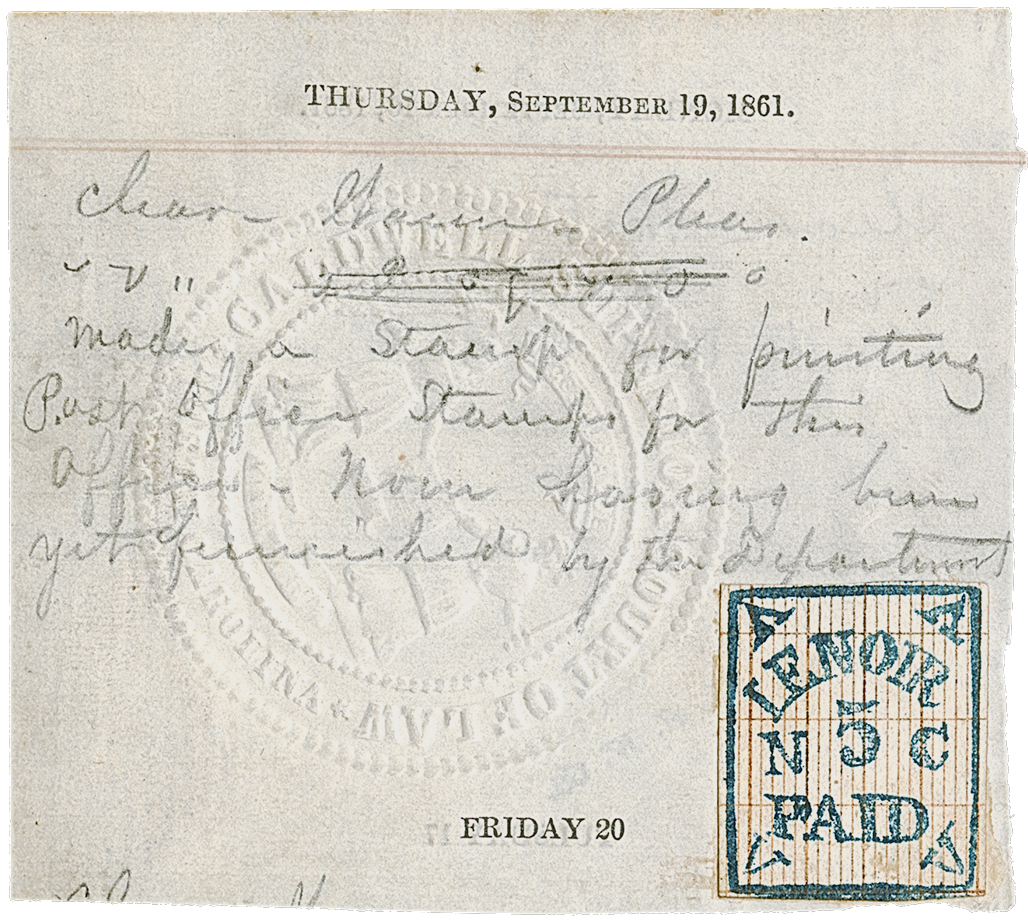 THURSDAY, SEPTEMBER 19, 1861.
Clear Pleas.
" " "
made a Stamp for printing
Post Office Stamps for this
Office - None having been
yet furnished by the Department
CALDWELL COURT OF LAW
LENOIR
N 5 C
PAID
FRIDAY 20